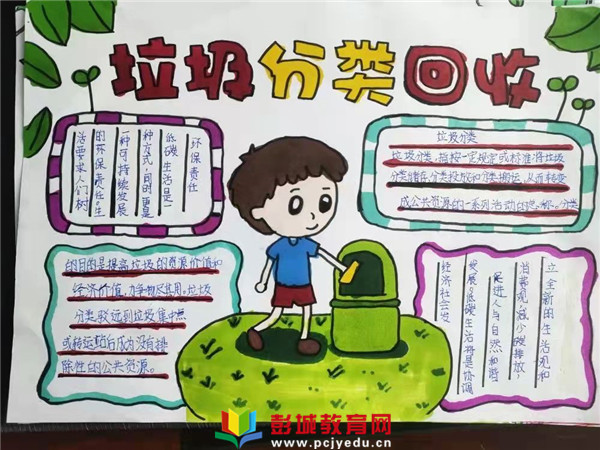 垃圾分类回收
环保责任
低碳生活是一
种方式,同时更是
一种可持续发展
的环保责任,生
活要求人们树
立全新的生活观和
消费观,减少碳排放,
促进人与自然和谐
发展。低碳生活将是协调
经济社会发
垃圾分类
垃圾分类,指按一定规定或标准将垃圾
分类储存、分类投放和分类搬运,从而转变
成公共资源的一系列活动的总称。分类
的目的是提高垃圾的资源价值和
经济价值,力争物尽其用。垃圾
分类驳运到垃圾集中点
或转运站后成为没有排
除性的公共资源。
彭城教育网
www.pcjyedu.cn